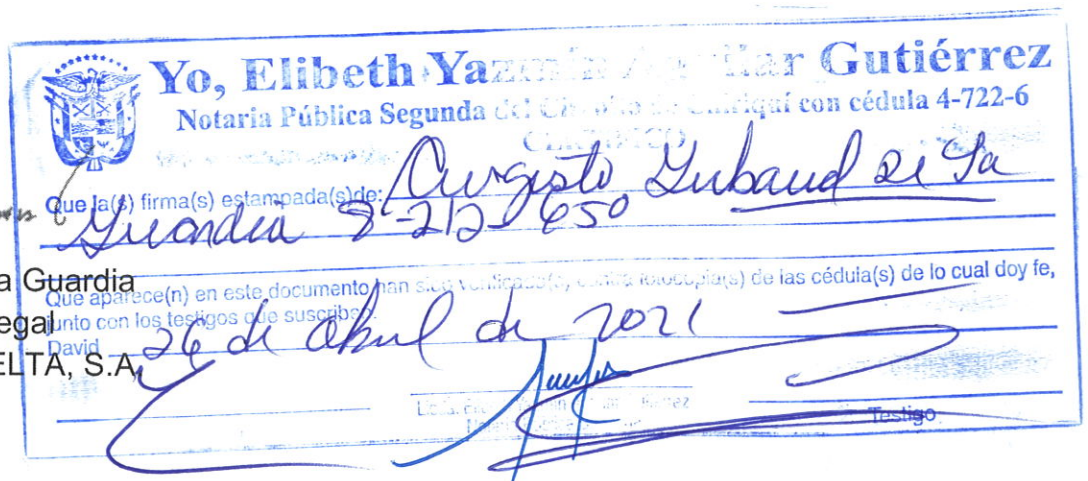 Yo, Elibeth Yazmín Gutiérrez
Notaria Pública Segunda del Chiriquí con cédula 4-722-6
CERTIFICO
Que la(s) firma(s) estampada(s) de: Augusto Gerbaud De La
Guardia 8-212-650
a Guardia
Que aparece(n) en este documento han sido verificado(s) contra fotocopia(s) de las cédula(s) de lo cual doy fe,
egal
junto con los testigos que suscriben.
David 26 de abril de 2021
ELTA, S.A.
Testigo